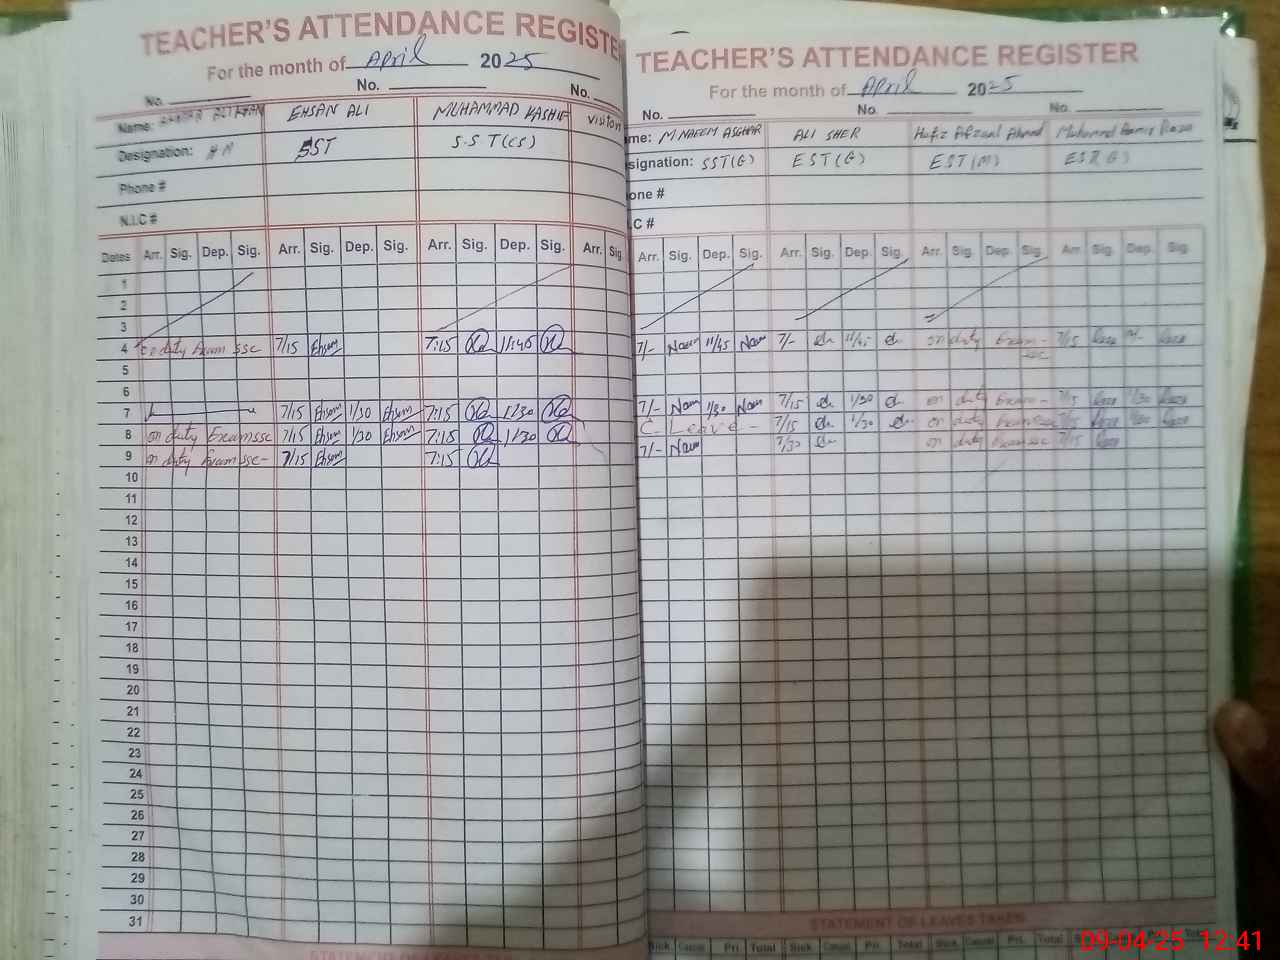 TEACHER'S ATTENDANCE REGISTE
For the month of April 2025
No. No. No.
Name: EHSAN ALI MUHAMMAD KASHIF visitor
Designation: HM SST S.S T(CS)
Phone #
N.I.C #
Dates Arr. Sig. Dep. Sig. Arr. Sig. Dep. Sig. Arr. Sig. Dep. Sig. Arr. Sig
1
2
3
4 on duty Exam SSC 7/15 Ehsan 7:15 11:45
5
6
7 7/15 Ehsan 1/30 Ehsan 7:15 1:30
8 on duty Exam ssc 7/15 Ehsan 1/30 Ehsan 7:15 1:30
9 on duty Exam ssc- 7/15 Ehsan 7:15
10
11
12
13
14
15
16
17
18
19
20
21
22
23
24
25
26
27
28
29
30
31
TEACHER'S ATTENDANCE REGISTER
For the month of April 2025
No. No No.
me: M NAEEM ASGHAR ALI SHER Hafiz Afzaal Ahmad Muhammad Raza
signation: SST(G) EST(G) EST(M) EST(G)
one #
.C #
Arr. Sig. Dep. Sig. Arr. Sig. Dep. Sig. Arr. Sig. Dep. Sig. Arr. Sig. Dep. Sig.
7/- Naeem 11/45 Naeem 7/- 11/45 on duty Exam- SSC 7/15 Raza Raza
7/- Naeem 1/30 Naeem 7/15 1/30 on duty Exam- 7/15 Raza 1/30 Raza
C- Leave - 7/15 1/30 on duty Exam ssc 7/15 Raza 1/30 Raza
7/- Naeem 7/30 on duty Exam ssc 7/15 Raza
STATEMENT OF LEAVES TAKEN
Sick Casual Pri. Total Sick Casual Pri. Total Sick Casual Pri. Total
09-04-25 12:41